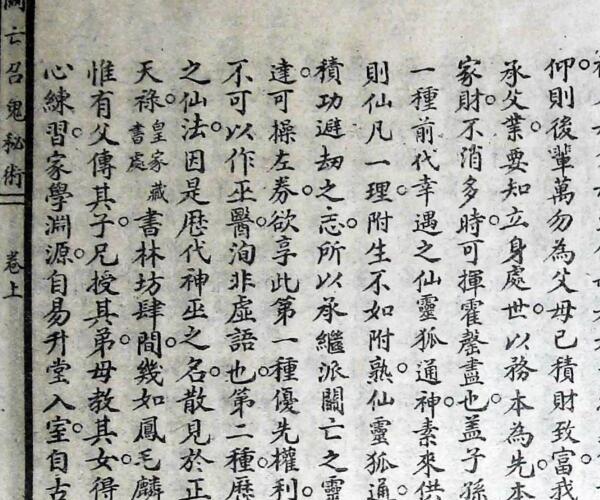 仰則後輩萬勿為父母已積財致富我
承父業要知立身處世以務本為先本
家財不消多時可揮霍罄盡也蓋子孫
一種前代幸遇之仙靈狐通神素來供
則仙凡一理附生不如附熟仙靈狐通
積功避劫之志所以承繼派關亡之靈
達可操左券欲享此第一種優先權利
不可以作巫醫洵非虛語也第二種歷
之仙法因是歷代神巫之名散見於正
天祿皇家藏書處書林坊肆間幾如鳳毛麟
惟有父傳其子兄授其弟母教其女得
心練習家學淵源自易升堂入室自古
關亡召鬼秘術 卷上